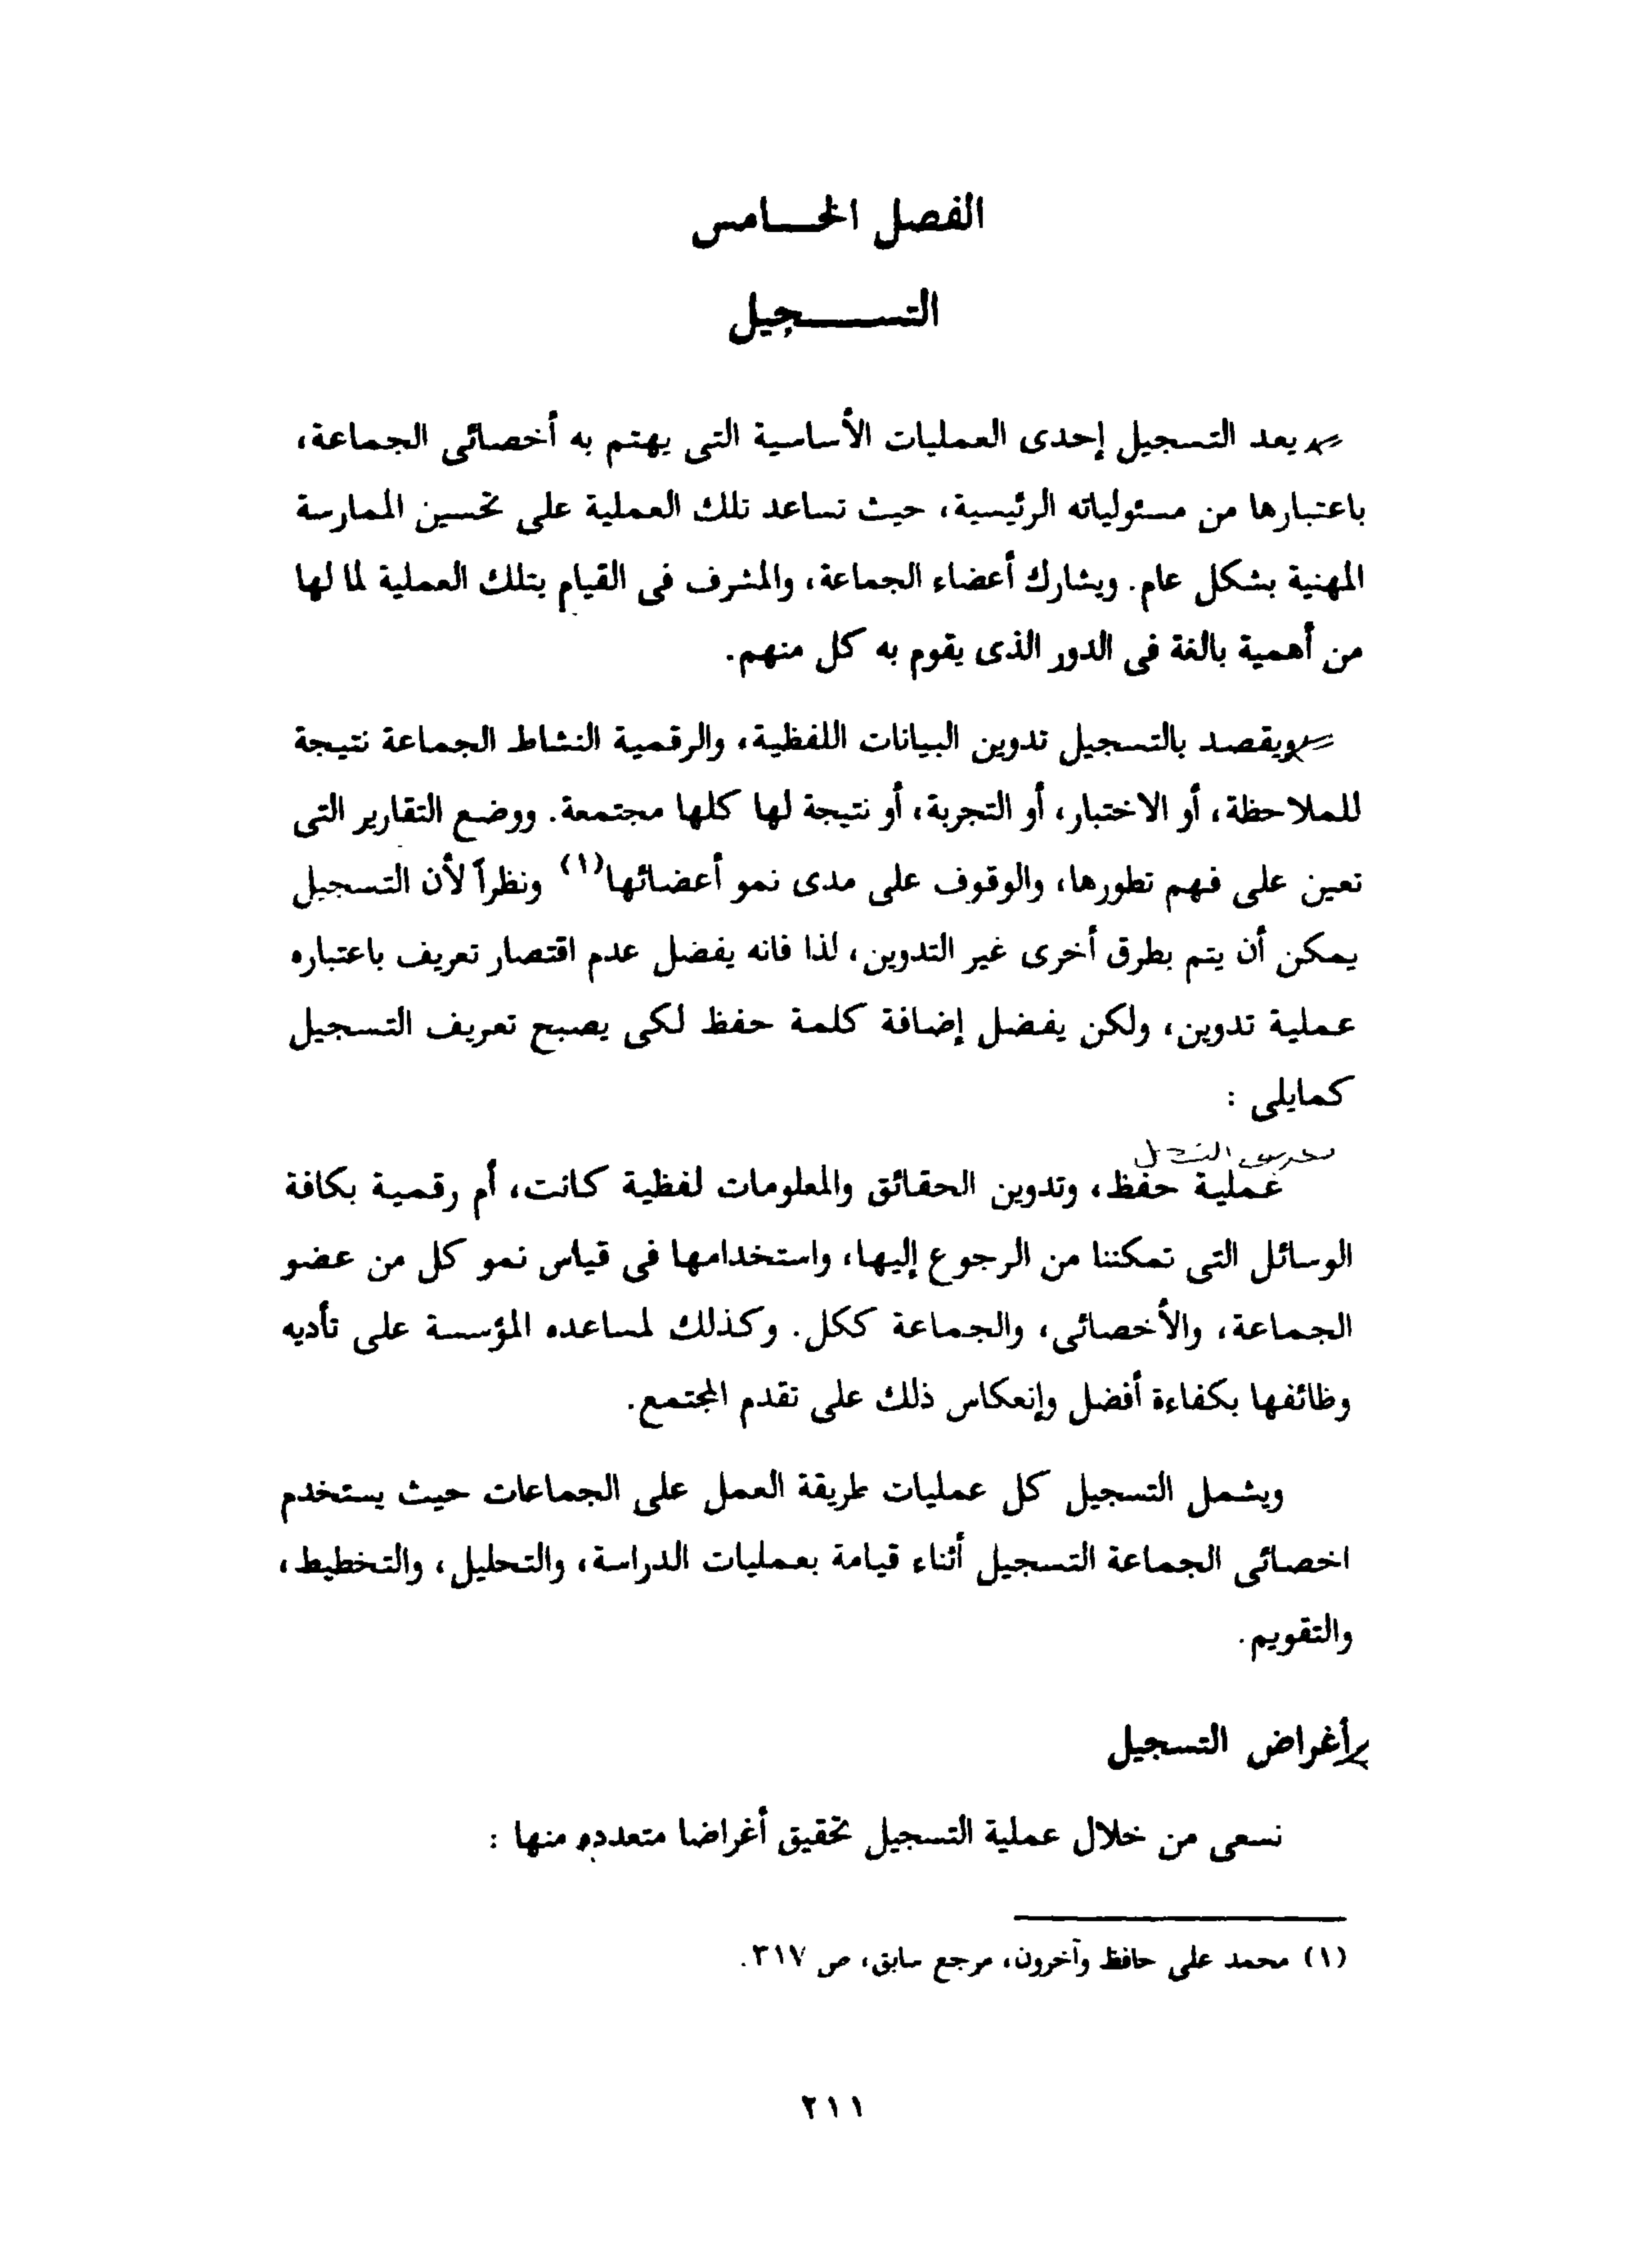 الفصل الخـــامس
التســـــجيل
يعد التسجيل إحدى العمليات الأساسية التى يهتم به أخصائى الجماعة،
باعتبارها من مسئولياته الرئيسية، حيث تساعد تلك العملية على تحسين الممارسة
المهنية بشكل عام. ويشارك أعضاء الجماعة، والمشرف فى القيام بتلك العملية لما لها
من أهمية بالغة فى الدور الذى يقوم به كل منهم.
ويقصد بالتسجيل تدوين البيانات اللفظية، والرقمية النشاط الجماعة نتيجة
للملاحظة، أو الاختبار، أو التجربة، أو نتيجة لها كلها مجتمعة. ووضع التقارير التى
تعين على فهم تطورها، والوقوف على مدى نمو أعضائها(١) ونظراً لأن التسجيل
يمكن أن يتم بطرق أخرى غير التدوين، لذا فانه يفضل عدم اقتصار تعريف باعتباره
عملية تدوين، ولكن يفضل إضافة كلمة حفظ لكى يصبح تعريف التسجيل
كمايلى :
عملية حفظ، وتدوين الحقائق والمعلومات لفظية كانت، أم رقمية بكافة
الوسائل التى تمكننا من الرجوع إليها، واستخدامها فى قياس نمو كل من عضو
الجماعة، والأخصائى، والجماعة ككل. وكذلك لمساعده المؤسسة على تأديه
وظائفها بكفاءة أفضل وإنعكاس ذلك على تقدم المجتمع.
ويشمل التسجيل كل عمليات طريقة العمل على الجماعات حيث يستخدم
اخصائى الجماعة التسجيل أثناء قيامة بعمليات الدراسة، والتحليل، والتخطيط،
والتقويم.
أغراض التسجيل
نسعى من خلال عملية التسجيل تحقيق أغراضا متعدده منها :
(١) محمد على حافظ وآخرون، مرجع سابق، ص ٣١٧.
٢١١